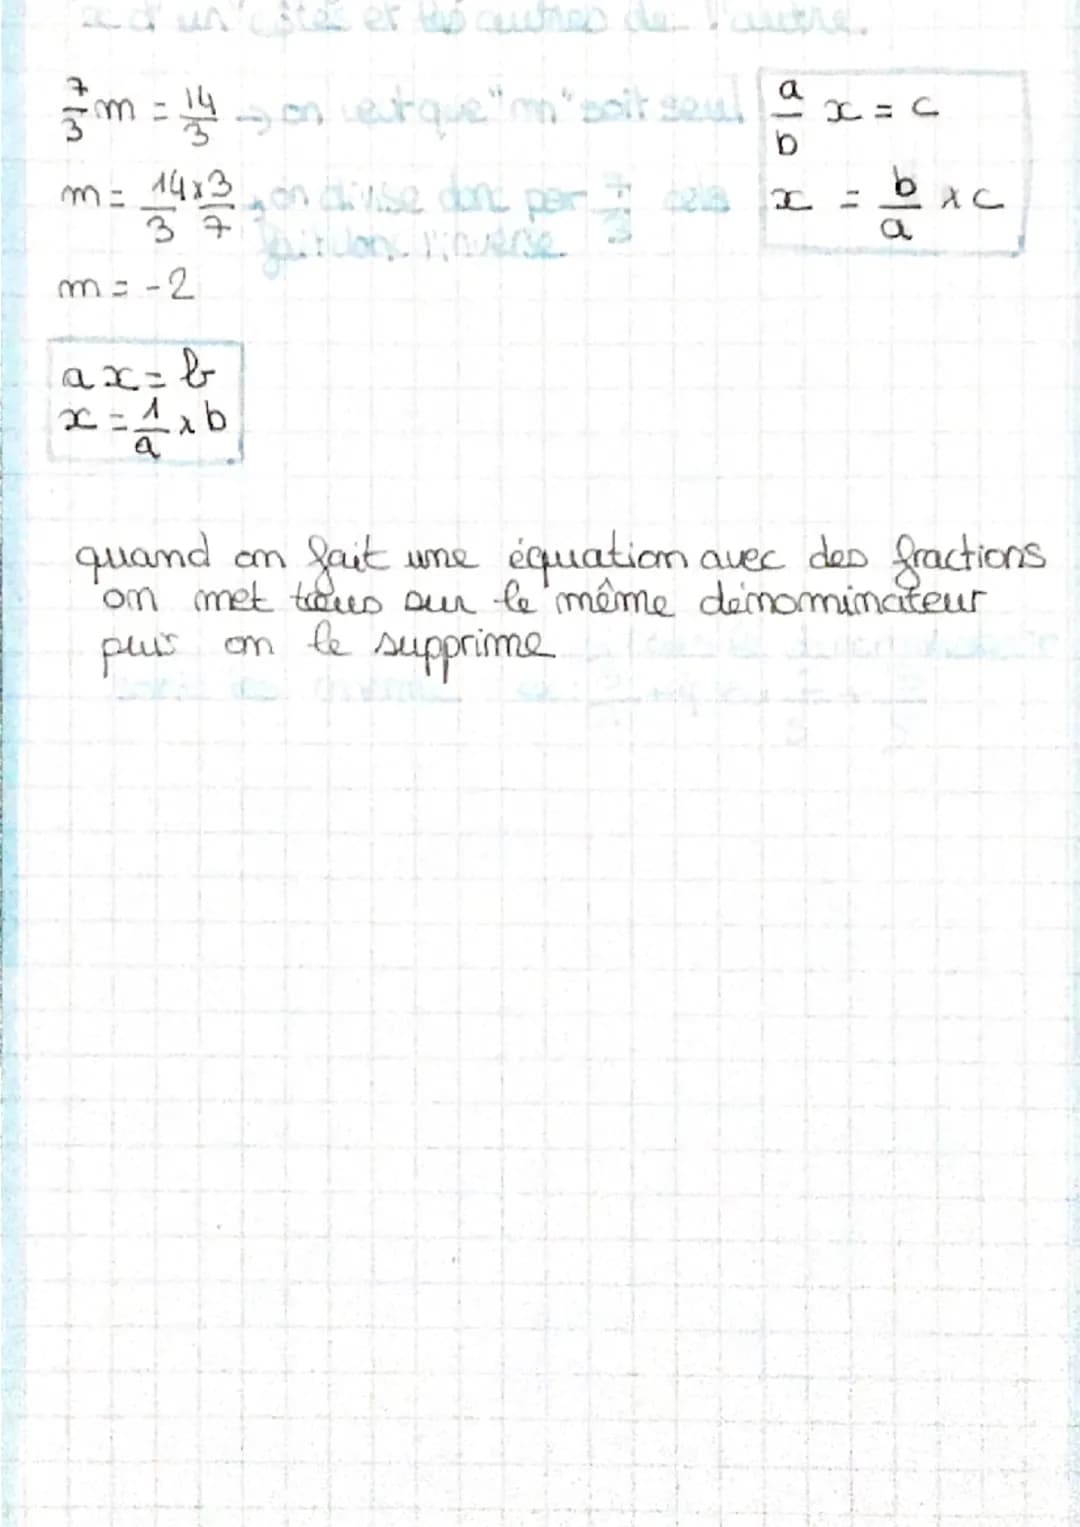 x d'un côtés et les autres de l'autre.
7/3 m = 14/3 → on veut que "m" soit seul
m = 14x3 / 3 7 → on divise donc par 7/3 cela
fait donc l'inverse
m = -2
a/b x = c
x = b/a x c
ax = b
x = 1/a x b
quand on fait une équation avec des fractions
on met tous sur le même dénominateur
puis on le supprime